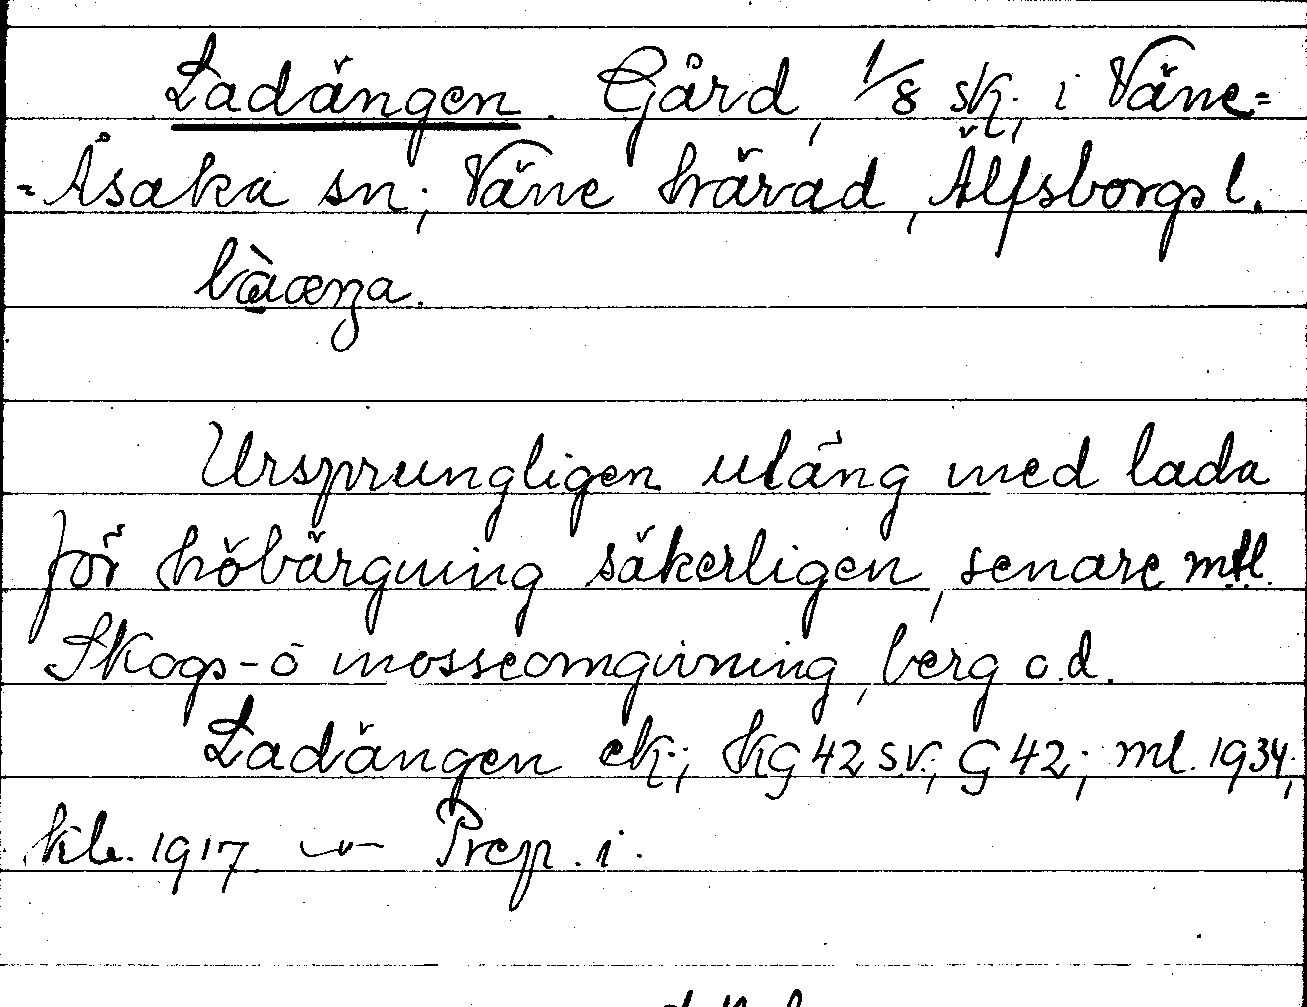 Ladängen. Gård, 1/8 sk., i Väne=
=Åsaka sn; Väne härad, Älfsborgs l.
Ursprungligen utäng med lada
för höbärgning säkerligen, senare mtl.
Skogs- o mosseomgivning, berg o.d.
Ladängen ek.; HG 42 sv.; G 42; ml. 1934;
kb. 1917 Prep. i.